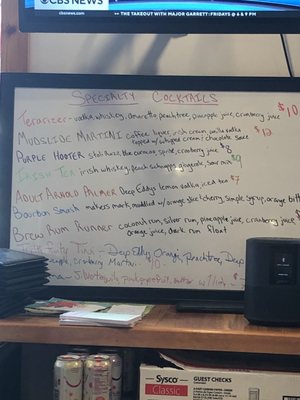 CBS NEWS
cbsnews.com THE TAKEOUT WITH MAJOR GARRETT: FRIDAYS @ 5 & 9 PM
SPECIALTY COCKTAILS
Tera rizer - vodka, whiskey, amaretto, peachtree, pineapple juice, cranberry juice $10
MUDSLIDE MARTINI coffee liquer, irish cream, vanilla vodka $12
topped w/ whipped cream & chocolate sauce
PURPLE HOOTER stoli razz, blue curacao, sprite, cranberry juice $8
IRISH TEA irish whiskey, peach schnapps, gingerale, sour mix $9
ADULT ARNOLD PALMER Deep Eddys lemon vodka, iced tea $7
Bourbon Smash makers mark, muddled w/ orange slice & cherry, simple syrup, orange bitt
BREW RUM RUNNER coconut rum, silver rum, pineapple juice, cranberry juice $
orange juice, dark rum float
Tini - Deep Eddy Orange, Peachtree, Deep
cranberry Martini $10
Sysco
Classic
GUEST CHECKS